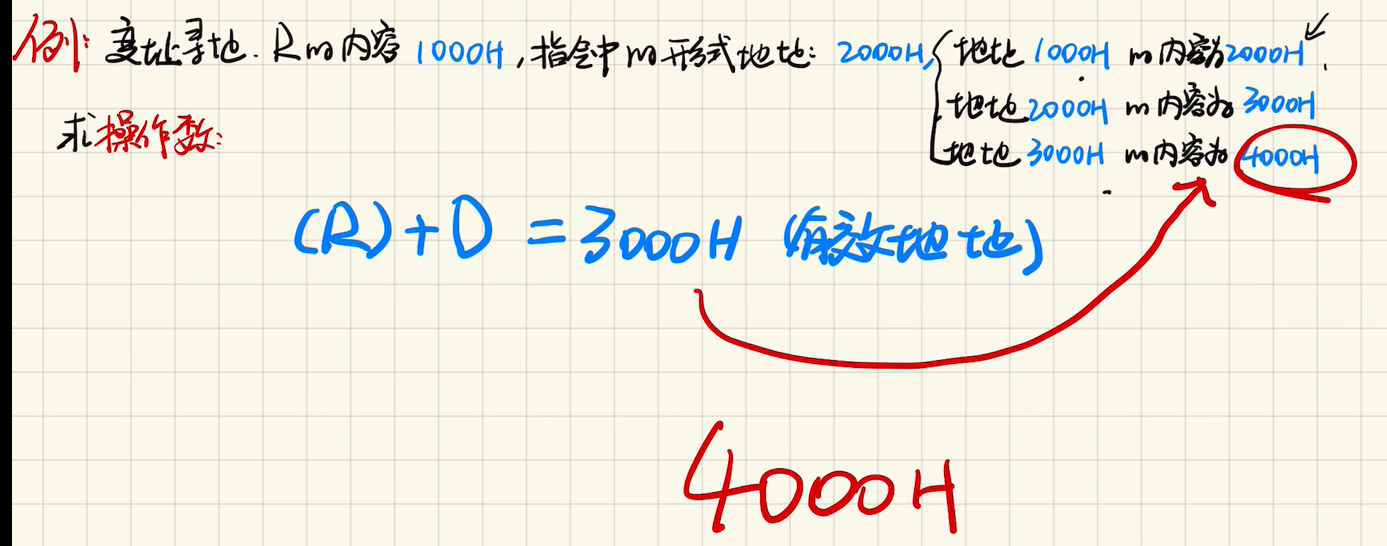 例: 变址寻址. R的内容 1000H, 指令中的形式地址: 2000H, 地址 1000H 的内容为2000H,
地址2000H 的内容为 3000H
求操作数:
地址 3000H 的内容为 4000H
(R)+D = 3000H (有效地址)
4000H